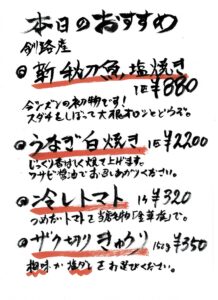 本日のおすすめ
釧路産
新秋刀魚塩焼き 1匹¥880
今シーズンの初物です!
スダチをしぼって大根オロシとどうぞ。
うなぎ白焼き 1匹¥2200
じっくり香ばしく焼き上げます。
ワサビ醤油でお召しあがりください。
冷しトマト 1ケ¥320
つめたいトマトを当店名物「
ザク切りきゅうり ¥350
梅味か塩ダレをお選びください。